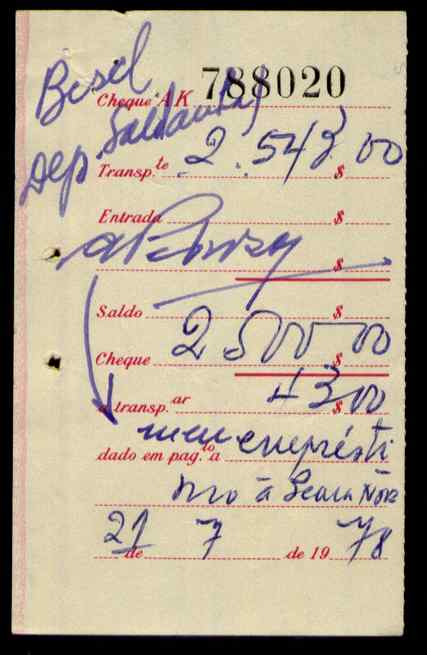 Besel
Cheque AK 788020
Dep. Saldanha
Transp.te 2.543$00
Entrada
$
Saldo $
Cheque 2500$00
a transp.ar 43$00
dado em pag.to a meu emprésti
mo à Seara Nova
21 de 7 de 1978